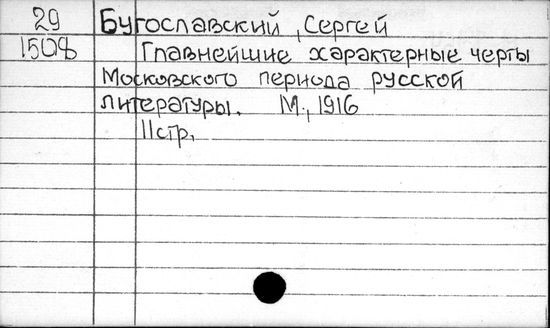 29 Бугославский, Сергей
1508 Главнейшие характерные черты
Московского периода русской
литературы. М., 1916
11стр.